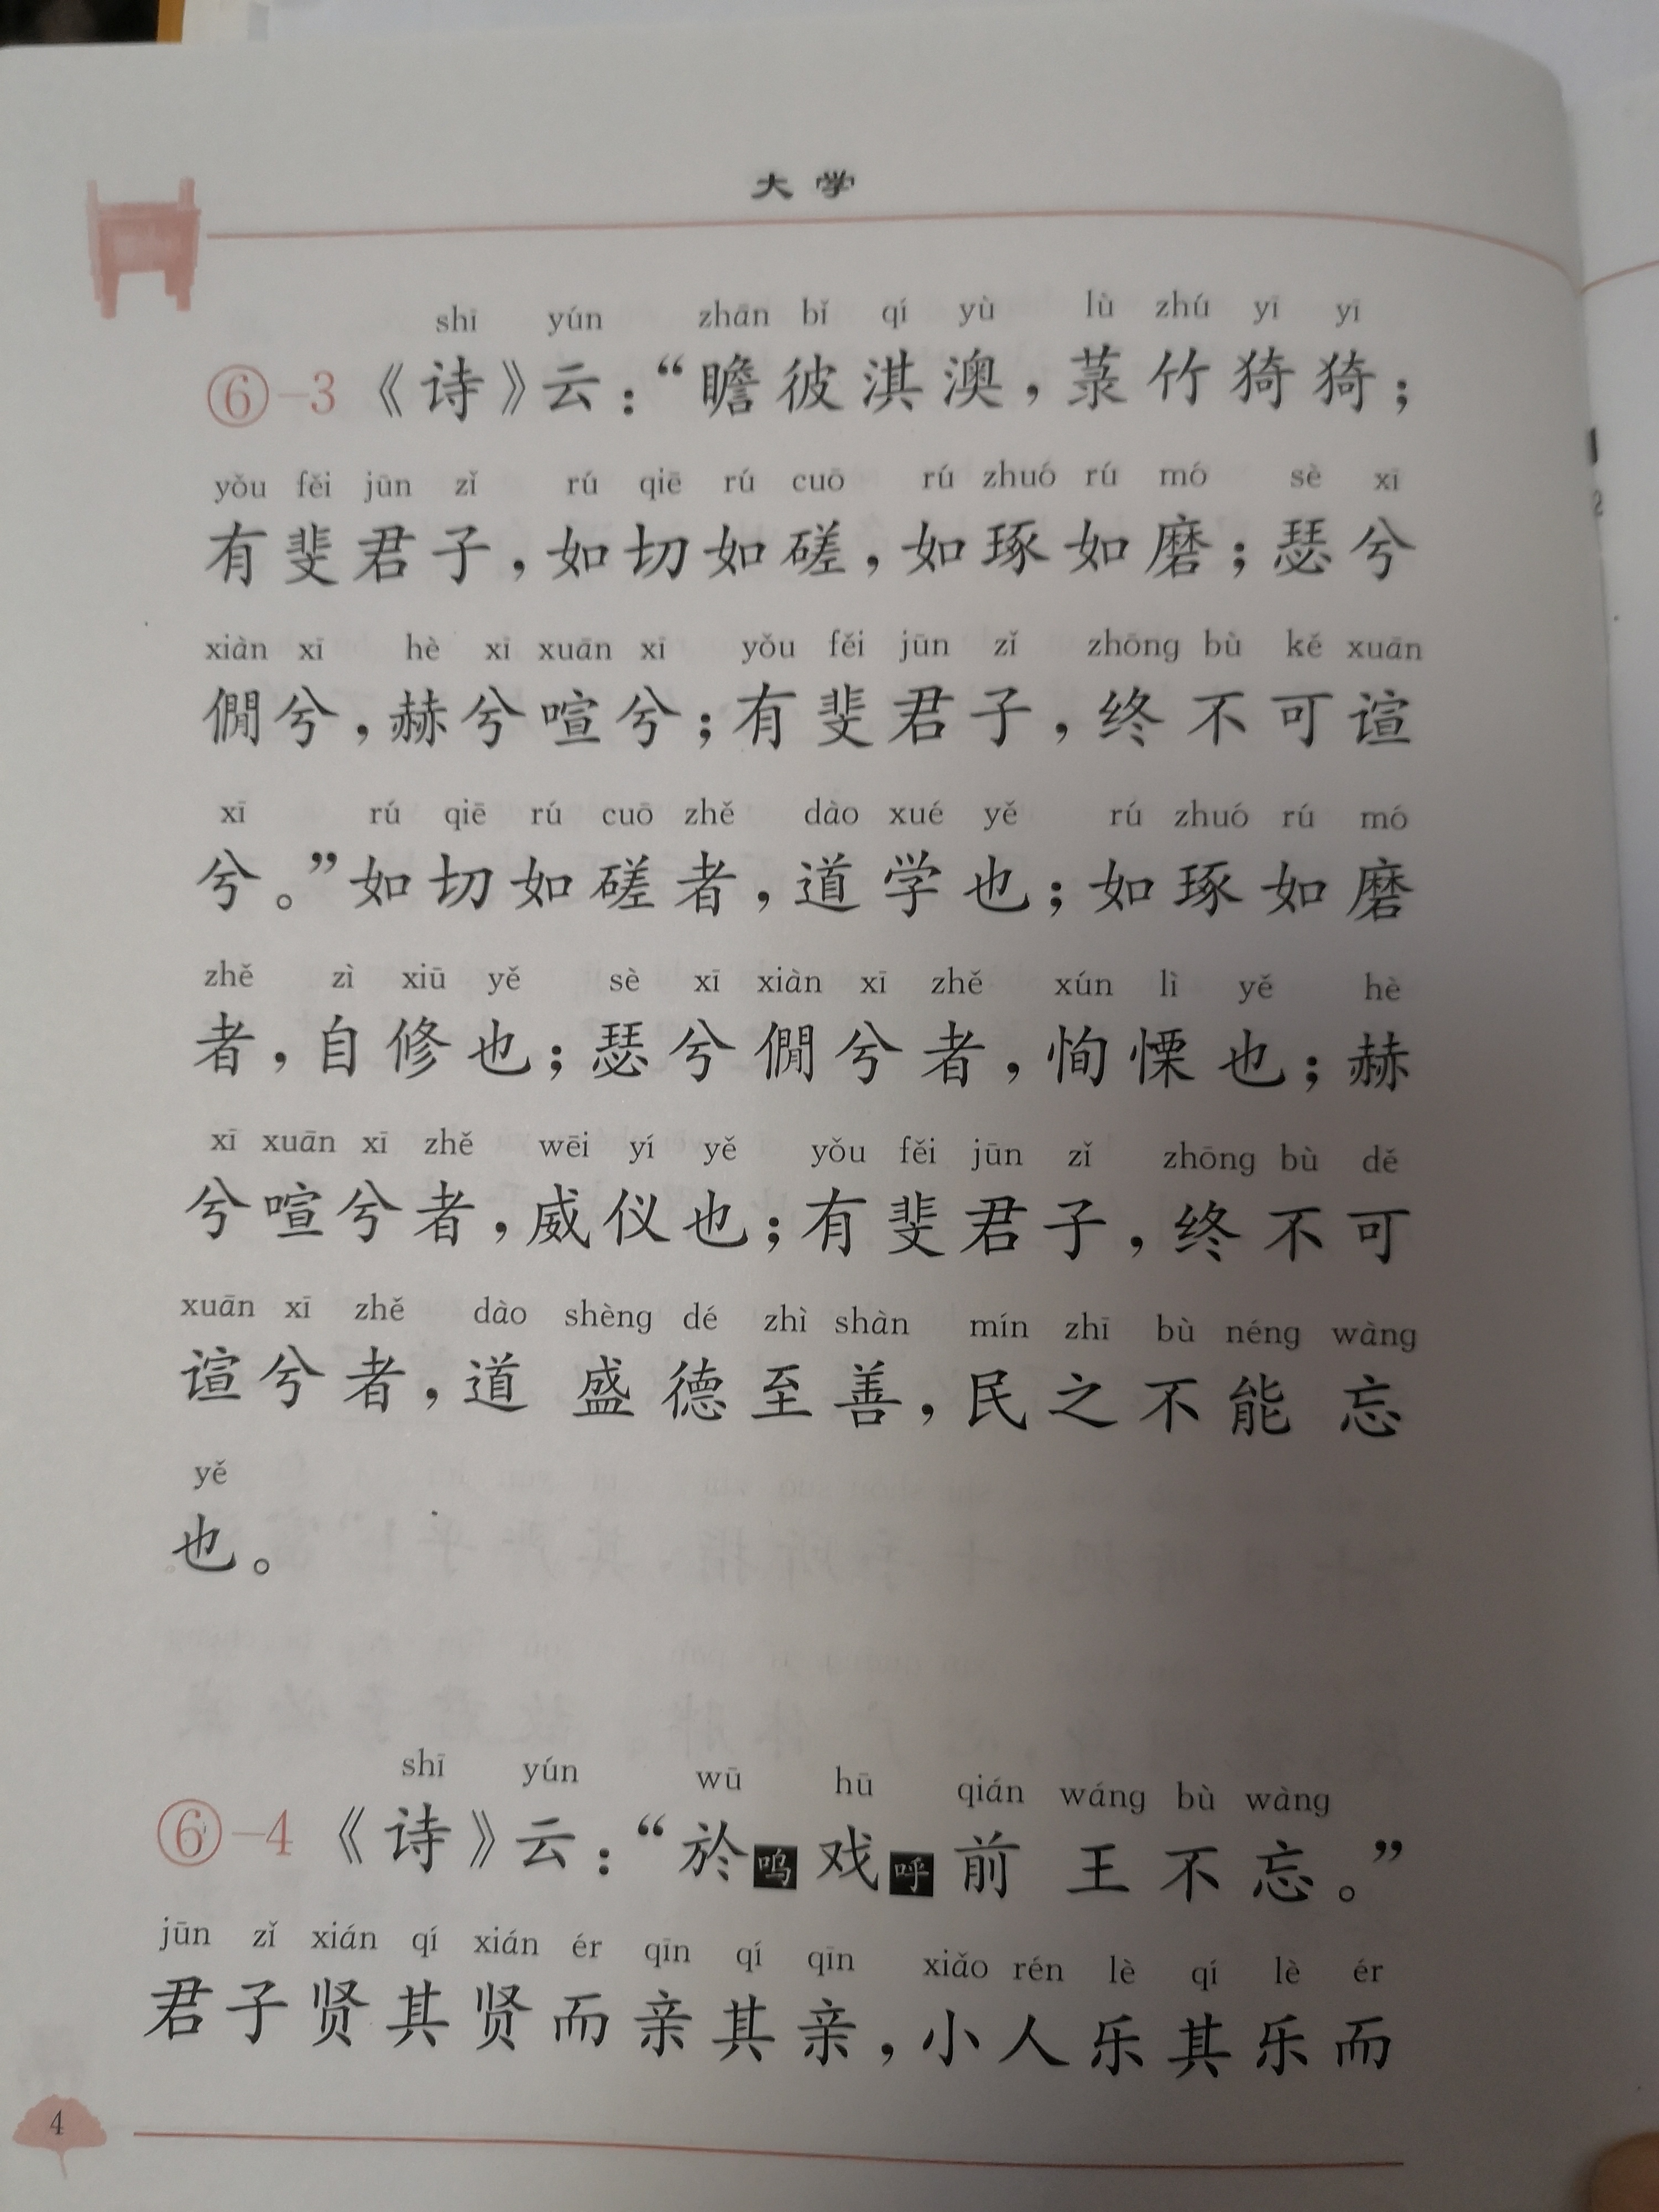 大学
shī yún zhān bǐ qí yù lù zhú yī yī
⑥-3《诗》云：“瞻彼淇澳，菉竹猗猗；
yǒu fěi jūn zǐ rú qiē rú cuō rú zhuó rú mó sè xī
有斐君子，如切如磋，如琢如磨；瑟兮
xiàn xī hè xī xuān xī yǒu fěi jūn zǐ zhōng bù kě xuān
僩兮，赫兮喧兮；有斐君子，终不可諠
xī rú qiē rú cuō zhě dào xué yě rú zhuó rú mó
兮。”如切如磋者，道学也；如琢如磨
zhě zì xiū yě sè xī xiàn xī zhě xún lì yě hè
者，自修也；瑟兮僩兮者，恂慄也；赫
xī xuān xī zhě wēi yí yě yǒu fěi jūn zǐ zhōng bù dě
兮喧兮者，威仪也；有斐君子，终不可
xuān xī zhě dào shèng dé zhì shàn mín zhī bù néng wàng
諠兮者，道盛德至善，民之不能忘
yě
也。
shī yún wū hū qián wáng bù wàng
⑥-4《诗》云：“於呜戏呼前王不忘。”
jūn zǐ xián qí xián ér qīn qí qīn xiǎo rén lè qí lè ér
君子贤其贤而亲其亲，小人乐其乐而
4